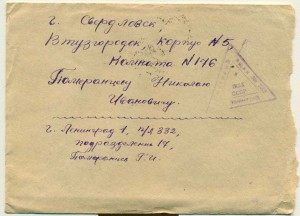 г. Свердловск,
Втузгородок корпус №5,
Комната №176
Померанцеву Николаю
Ивановичу.
г. Ленинград 1, п/я 332,
подразделения 14,